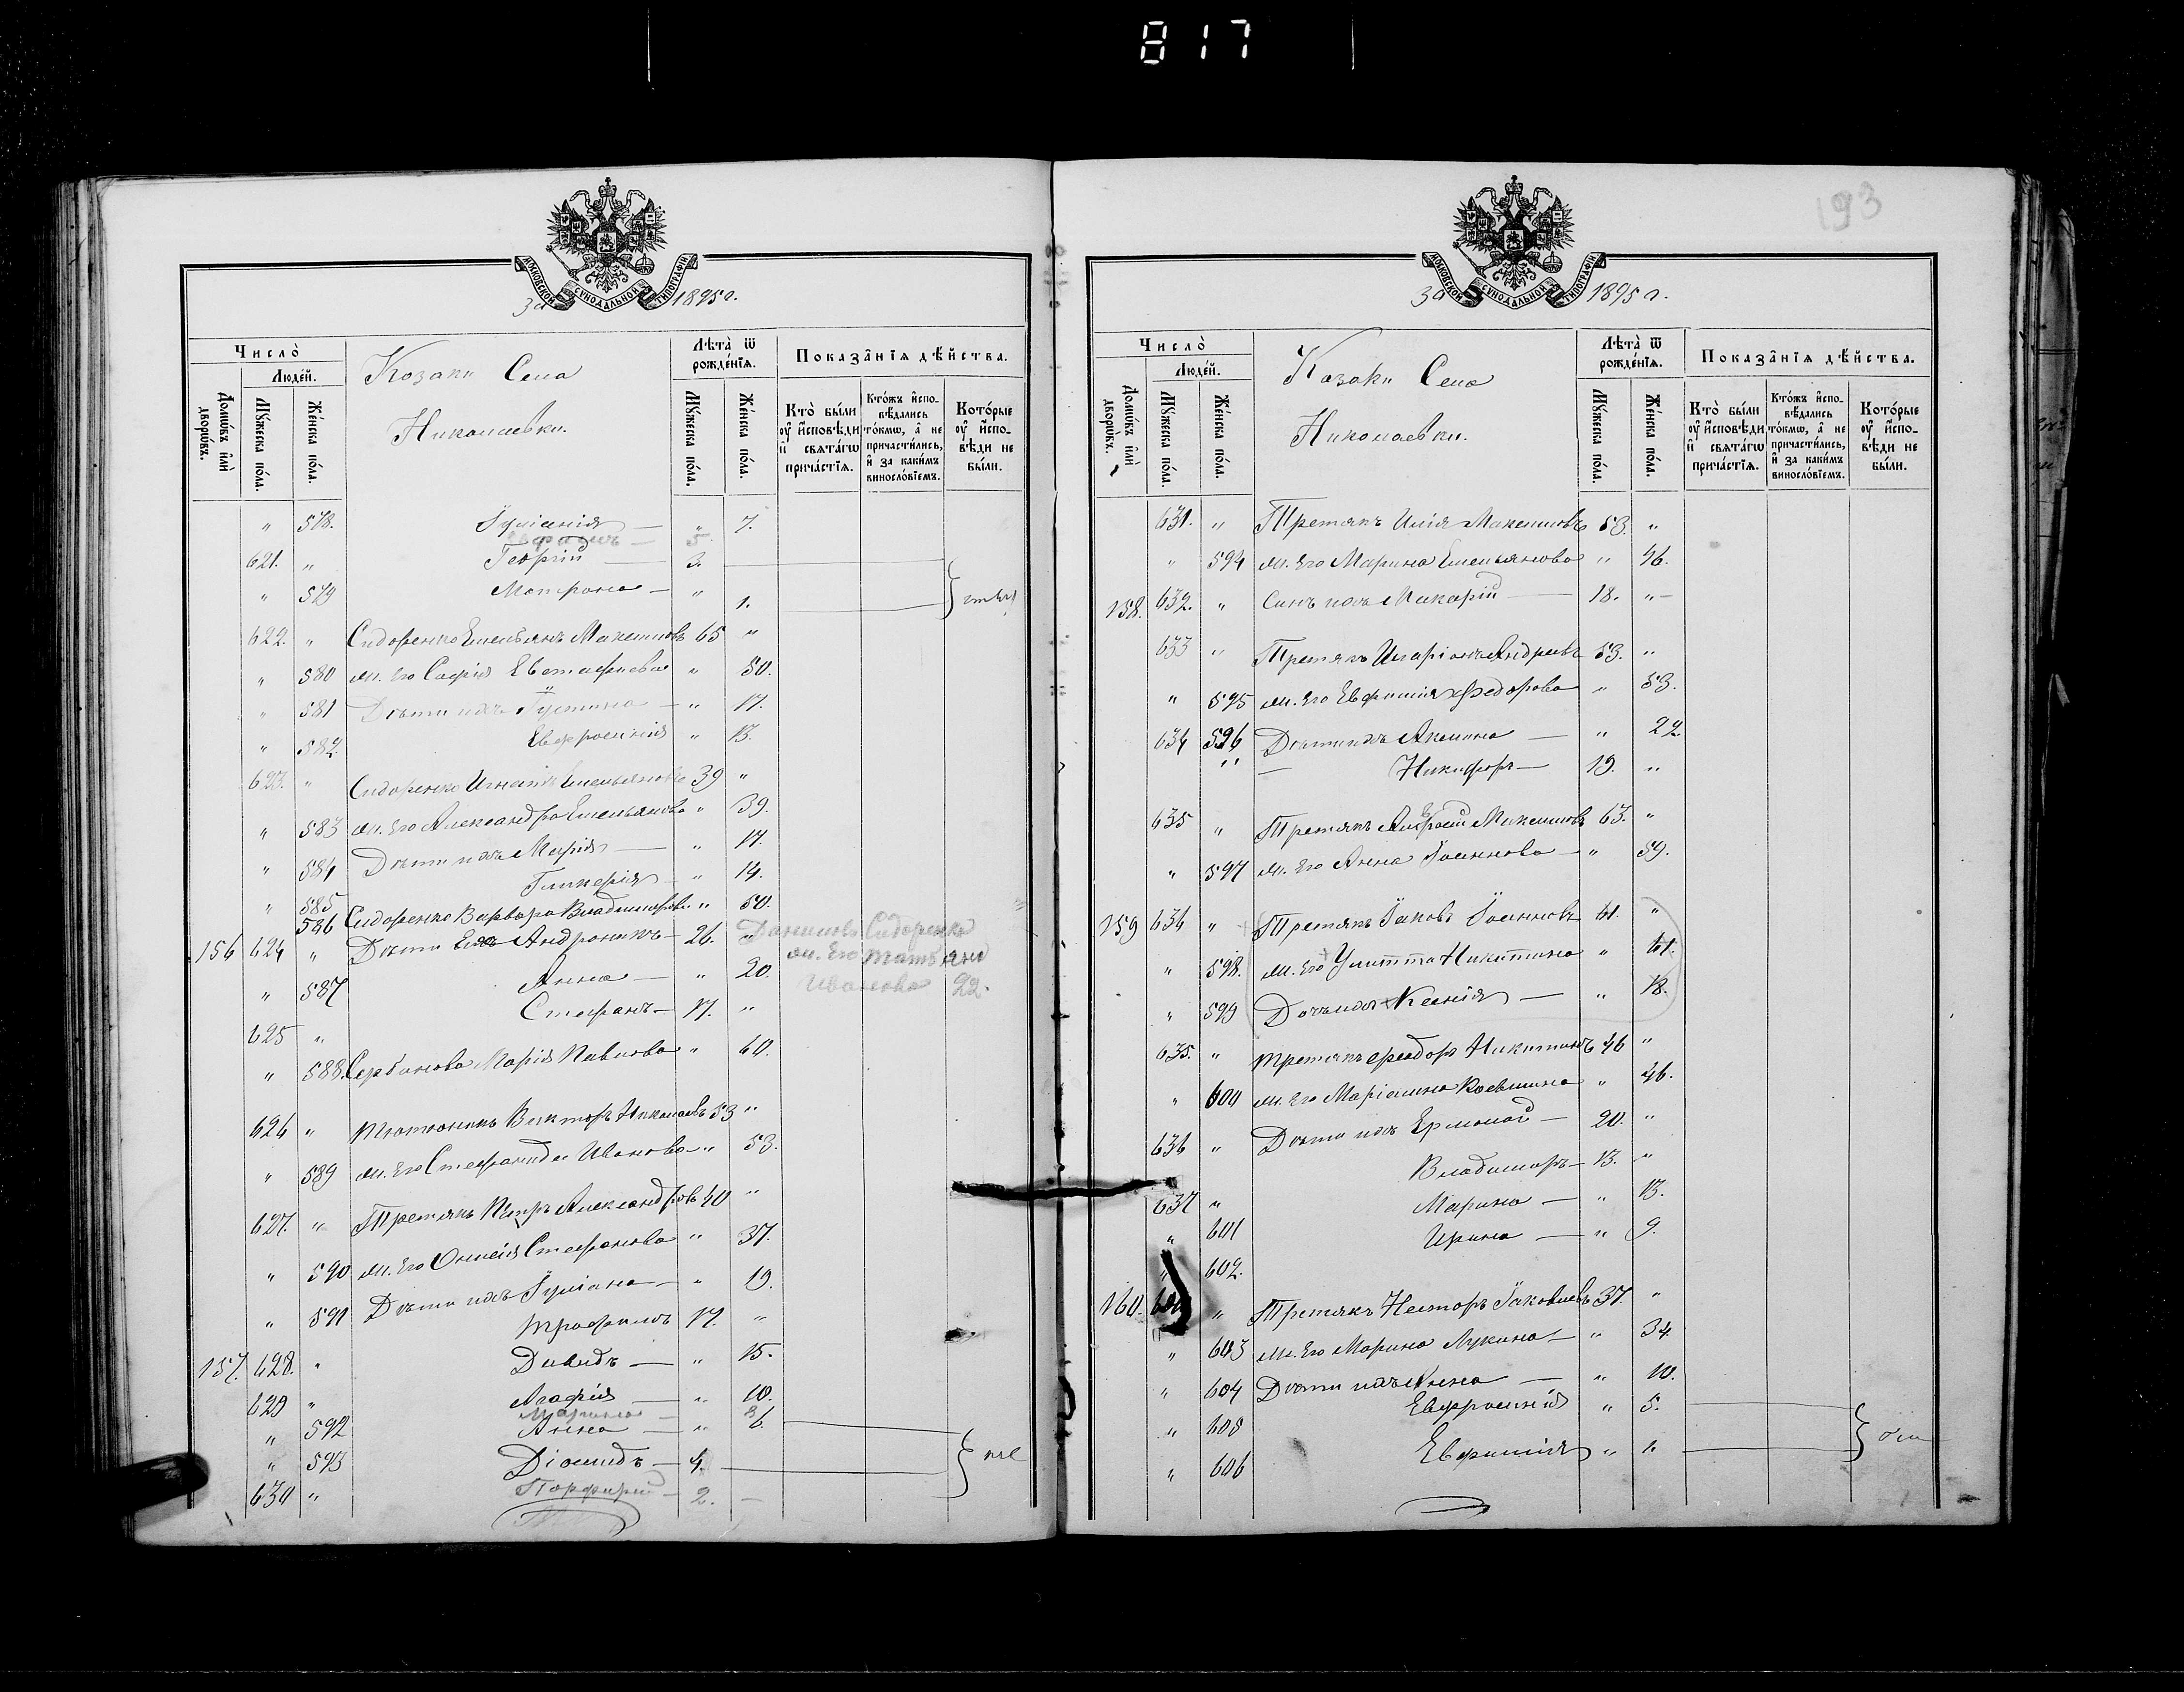 817
МОСКОВСКОЙ СѴНОДАЛЬНОЙ ТИПОГРАФІИ
За 1895 г.
Число̀
Люде́й.
Домѡ́въ и҆лѝ дворѡ́въ.
Мꙋ́жеска по́ла.
Же́нска по́ла.
Козаки Села
Николаевки.
Лѣта̀ ѿ рожде́нїѧ.
Мꙋ́жеска по́ла.
Же́нска по́ла.
Показа̑нїѧ дѣ́йства.
Кто̀ бы́ли оу҆ и҆сповѣ́ди и҆ свѧта́гѡ прича́стїѧ.
Кто́жъ и҆сповѣ́дались то́кмѡ, а҆ не причасти́лись, и҆ за каки́мъ винослѡ́вїемъ.
Кото́рые оу҆ и҆сповѣ́ди не бы́ли.
" 578. Іуліанія — " 7.
5.
621. " Георгій — 3.
" 579 Матрона — " 1.
622. " Сидоренко Емельянъ Максимовъ 65 "
" 580 ж. Его Софія Евстафіева " 50.
" 581 Дѣти ихъ Іустина — " 17.
" 582 Евфросинія " 13.
623. " Сидоренко Игнатъ Емельяновъ 39 "
" 583 ж. Его Александра Емельянова " 39.
" 584 Дѣти ихъ Марія — " 17.
" 585 Гликерія — " 14.
586 Сидоренко Варвара Владимірова " 50.
156 624 " Дѣти Ея Андроникъ — 26. " Даниловъ Сидоренко
ж. Его Татьяна
" 587 Анна — " 20 Иванова 22.
625 " Стефанъ — 17. "
" 588. Сербинова Марія Павлова " 60.
626 " Тютюникъ Викторъ Николаевъ 53 "
" 589 ж. Его Стефанида Иванова " 53.
627. " Третякъ Петръ Александровъ 40 "
" 590 ж. Его Онисія Стефанова " 37.
" 591 Дѣти ихъ Іуліана — " 19.
Трофимъ 17. "
157. 628. " Давидъ — " 15.
629 " Агафія — " 10.
" 592 Марина —
Анна — " 6.
" 593 Діомидъ — 4.
630 " Порфирій — 2. —
193
МОСКОВСКОЙ СѴНОДАЛЬНОЙ ТИПОГРАФІИ
За 1895 г.
Число̀
Люде́й.
Домѡ́въ и҆лѝ дворѡ́въ.
Мꙋ́жеска по́ла.
Же́нска по́ла.
Козаки Села
Николаевки.
Лѣта̀ ѿ рожде́нїѧ.
Мꙋ́жеска по́ла.
Же́нска по́ла.
Показа̑нїѧ дѣ́йства.
Кто̀ бы́ли оу҆ и҆сповѣ́ди и҆ свѧта́гѡ прича́стїѧ.
Кто́жъ и҆сповѣ́дались то́кмѡ, а҆ не причасти́лись, и҆ за каки́мъ винослѡ́вїемъ.
Кото́рые оу҆ и҆сповѣ́ди не бы́ли.
631. " Третякъ Илія Максимовъ 53. "
" 594 ж. Его Марина Емельянова " 46.
158. 632. " Сынъ ихъ Макарій — 18. "
633 " Третякъ Иларіонъ Андреевъ 53. "
" 595 ж. Его Евфимія Федорова " 53.
634 596 Дѣти ихъ Акилина — " 22.
" Никифоръ — 19. "
635 " Третякъ Максимовъ 63. "
" 597 ж. Его Анна Іоаннова — " 59.
159 636 " Третякъ Іаковъ Іоанновъ 61. "
" 598. ж. Его Улитта Никитина " 61.
" 599 Дочь ихъ Ксенія — " 18.
635. " Третякъ Феодоръ Никитинъ 46 "
" 600 ж. Его Маріамна " 46.
636 " Дѣти ихъ Ермолай — 20. "
Владиміръ — 13. "
637 " Марина — " 13.
" 601 Ирина — " 9.
" 602.
160. " Третякъ Несторъ Іаковлевъ 37. "
" 603 ж. Его Марина Лукина — " 34.
" 604 Дѣти ихъ Анна — " 10.
" 605 Евфросинія " 5.
" 606 Евфимія " 1.